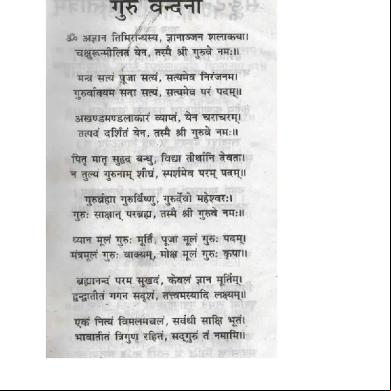 गुरु वन्दना
ॐ अज्ञान तिमिरान्धस्य, ज्ञानाञ्जन शलाकया।
चक्षुरून्मीलितं येन, तस्मै श्री गुरुवे नमः॥
मन्त्र सत्यं पूजा सत्यं, सत्यमेव निरंजनम।
गुरुर्वाक्यम सदा सत्यं, सत्यमेव परं पदम्॥
अखण्डमण्डलाकारं व्याप्तं, येन चराचरम्।
तत्पदं दर्शितं येन, तस्मै श्री गुरुवे नमः॥
पितृ मातृ सुहृद बन्धु, विद्या तीर्थानि देवता।
न तुल्य गुरुनाम् शीघ्रं, स्पर्शमेव परम् पदम्॥
गुरुर्ब्रह्मा गुरुर्विष्णु, गुरुर्देवो महेश्वरः।
गुरुः साक्षात् परब्रह्म, तस्मै श्री गुरुवे नमः॥
ध्यान मूलं गुरुः मूर्ति, पूजा मूलं गुरुः पदम्।
मंत्रमूलं गुरुः वाक्यम्, मोक्ष मूलं गुरुः कृपा॥
ब्रह्मानन्दं परम सुखदं, केवलं ज्ञान मूर्तिम्।
द्वन्द्वातीतं गगन सदृशं, तत्त्वमस्यादि लक्ष्यम्॥
एकं नित्यं विमलमचलं, सर्वधी साक्षि भूतं।
भावातीतं त्रिगुण रहितं, सदगुरुं तं नमामि॥